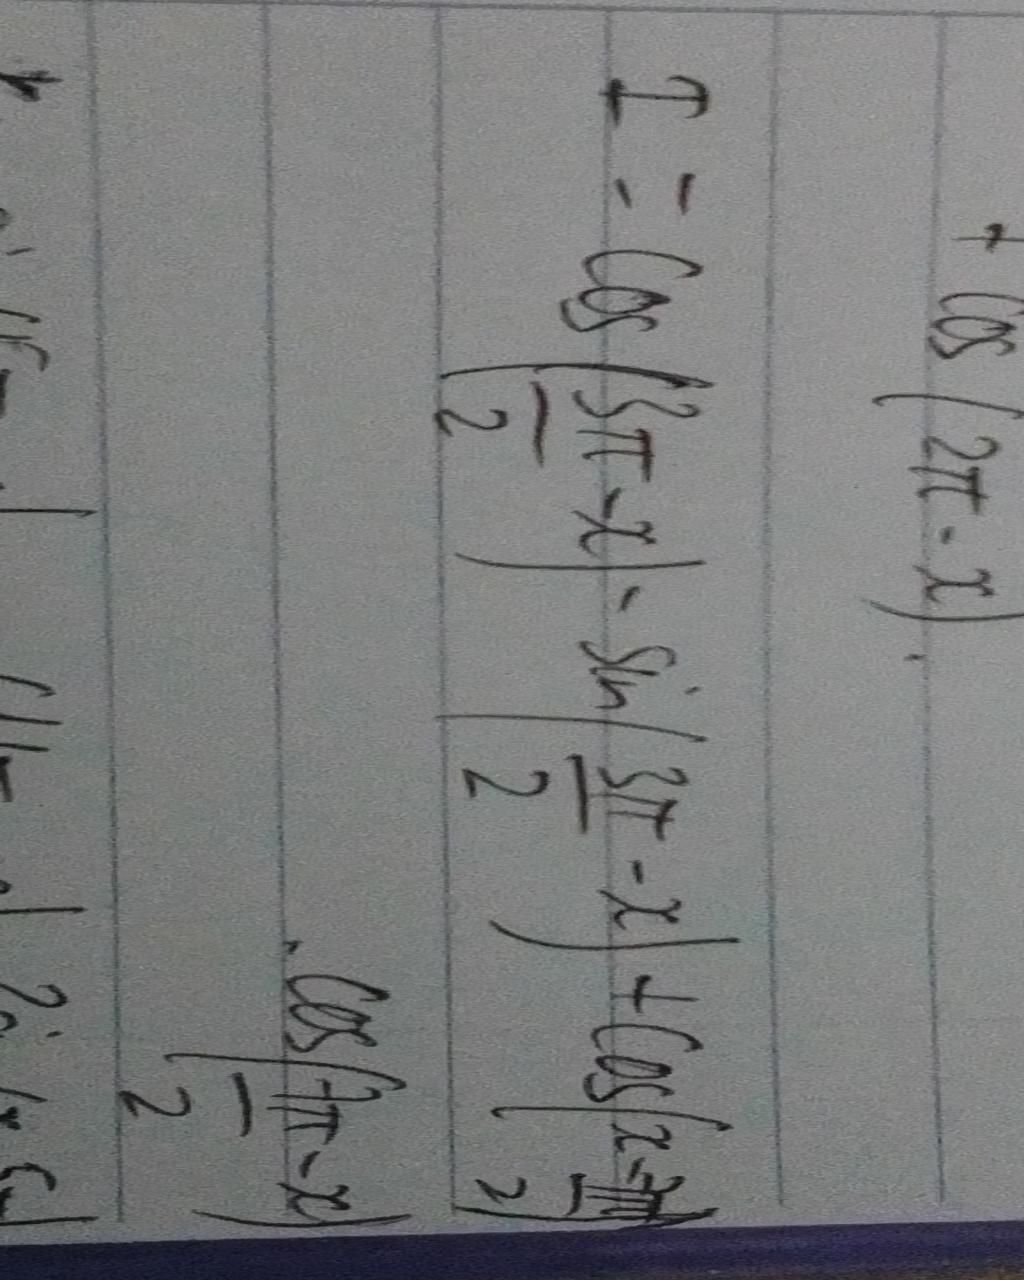 + cos (2π - x).
I = cos (3π/2 - x) - sin (3π/2 - x) + cos (x - 3π/2)
. cos (7π/2 - x)